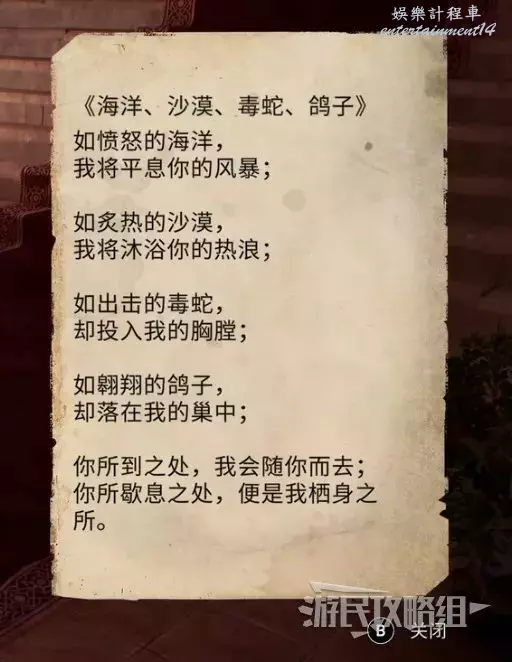 娛樂計程車
entertainment14
《海洋、沙漠、毒蛇、鸽子》
如愤怒的海洋，
我将平息你的风暴；
如炙热的沙漠，
我将沐浴你的热浪；
如出击的毒蛇，
却投入我的胸膛；
如翱翔的鸽子，
却落在我的巢中；
你所到之处，我会随你而去；
你所歇息之处，便是我栖身之
所。
游民攻略组
B 关闭